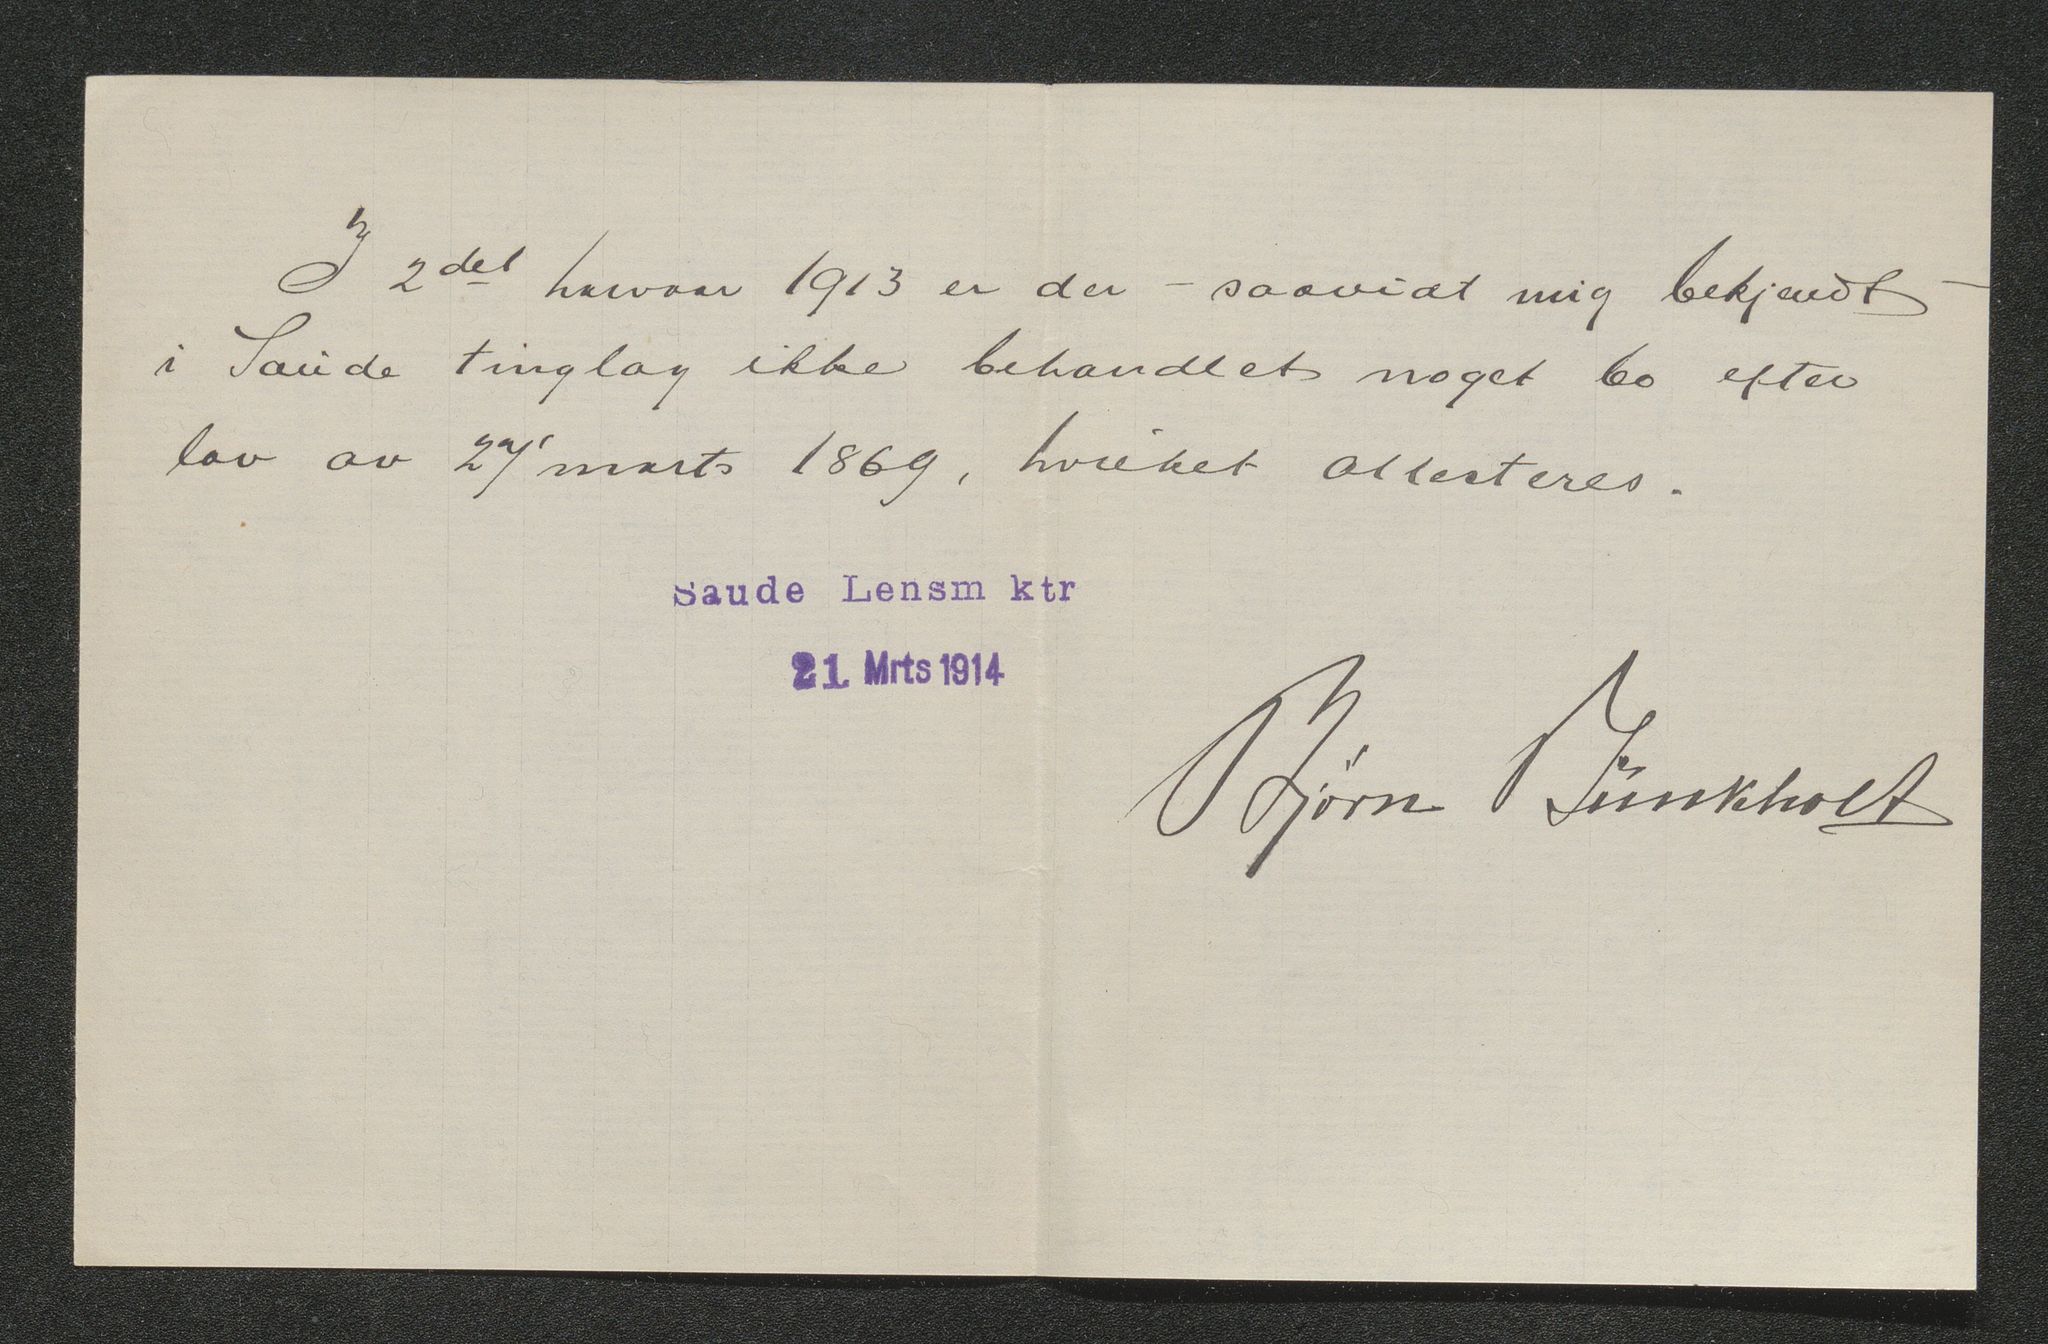 I 2det halvaar 1913 er der - saavidt mig bekjendt -
i Saude tinglag ikke behandlet noget bo efter
lov av 27' marts 1869, hvilket attesteres.
Saude Lensm ktr
21. Mrts 1914
Bjørn Bünkholt